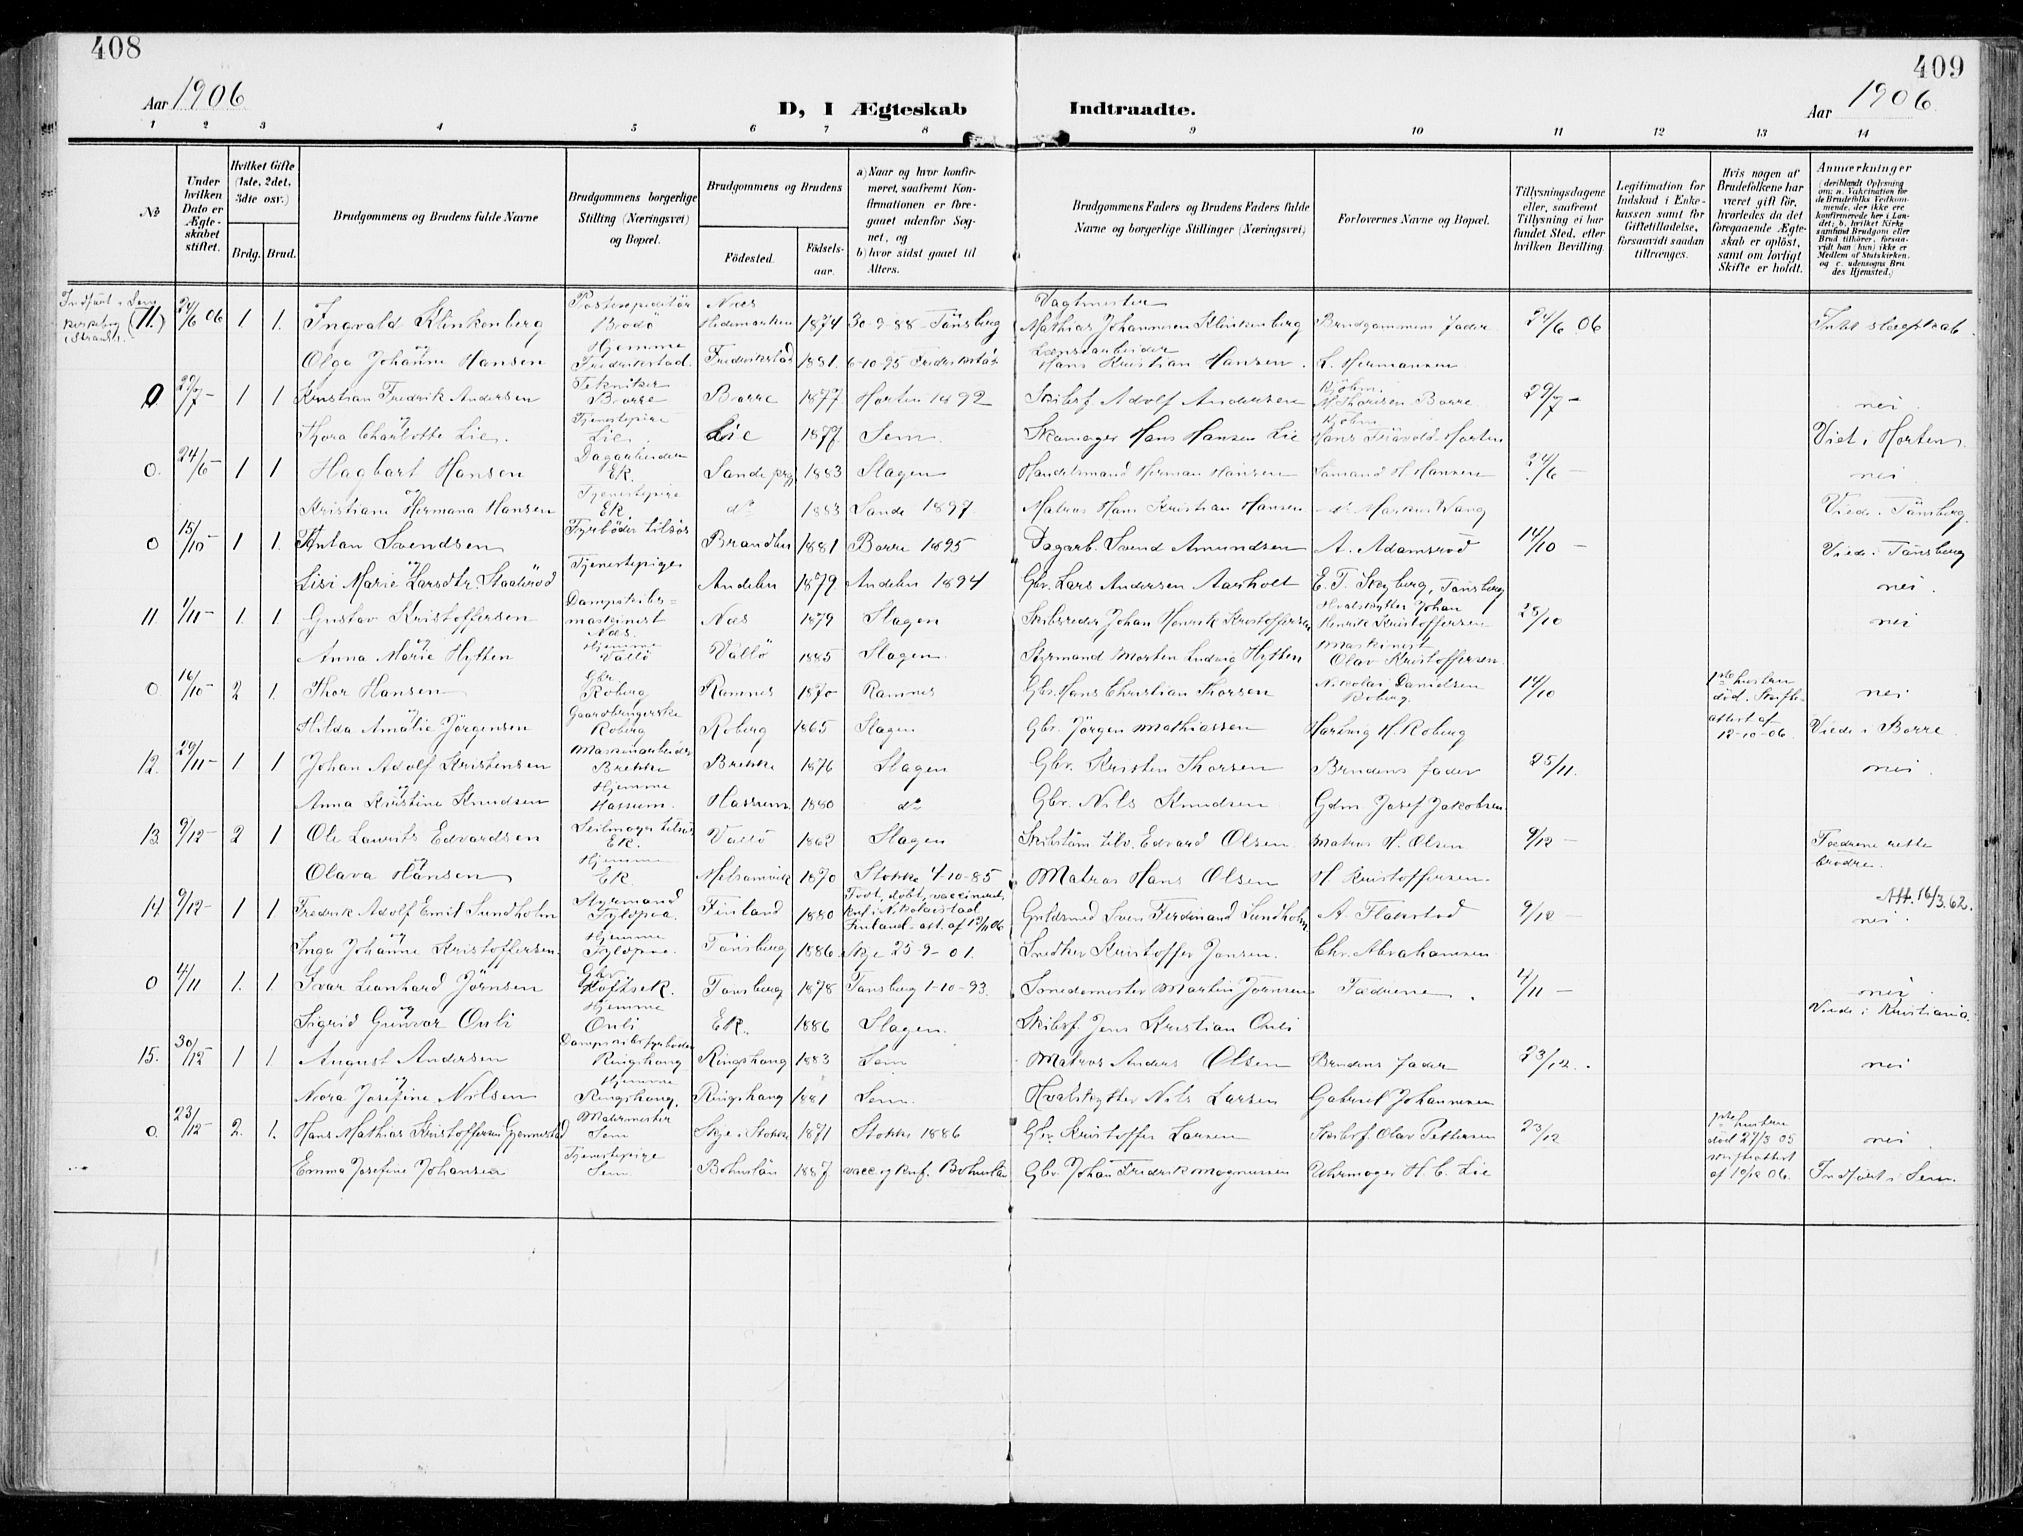 408
409
Aar 1906
D, I Ægteskab Indtraadte.
Aar 1906
1 2 3 4 5 6 7 8 9 10 11 12 13 14
No
Under hvilken Dato er Ægteskabet stiftet.
Hvilket Gifte (1ste, 2det, 3dte osv.)
Brdg. Brud.
Brudgommens og Brudens fulde Navne
Brudgommens borgerlige Stilling (Næringsvei) og Bopæl.
Brudgommens og Brudens
Födested. Födselsaar.
a) Naar og hvor konfirmeret, saafremt Konfirmationen er foregaaet udenfor Sognet, og
b) hvor sidst gaaet til Alters.
Brudgommens Faders og Brudens Faders fulde Navne og borgerlige Stillinger (Næringsvei)
Forlovernes Navne og Bopæl.
Tillysningsdagene eller, saafremt Tillysning ei har fundet Sted, efter hvilken Bevilling.
Legitimation for Indskud i Enkekassen samt for Giftetilladelse, forsaavidt saadan tiltrænges.
Hvis nogen af Brudefolkene har været gift för, hvorledes da det foregaaende Ægteskab er oplöst, samt om lovligt Skifte er holdt.
Anmærkninger (deriblandt Oplysning om: a. Vakcination for de Brudefolks Vedkommende, der ikke ere konfirmerede her i Landet; b. hvilket Kirkesamfund Brudgom eller Brud tilhörer, forsaavidt han (hun) ikke er Medlem af Statskirken, og c. udensogns Brudes Hjemsted.)
Indfört i Sem kirkebog (11.) 24/6 06 1 1. Ingvald Klinkenberg Postexpeditör Bodö Næs Hedemarken 1874 30-9-88 Tönsberg Vagtmester Mathias Johannesen Klinkenberg Brudgommens fader 24/6 06 Intet slægtskab
og Olga Johanne Hansen Hjemme Fredrikstad Fredrikstad 1881. 6-10-95 Fredrikstad Hans Kristian Hansen. L. Hermansen
0 29/7 - 1 1 Kristian Fredrik Andersen Tekniker Borre Borre 1877 Horten 1892 Skibsf. Adolf Andersen Kjöbm. M Thorisen Borre 29/7 - nei
og Thora Charlotte Lie. Tjenestepige Lie. Lie 1877 Sem Skomager Hans Hansen Lie Kjöbm. Viet i Horten
0. 24/6 - 1 1 Hagbart Hansen Dagarbeider EK. Sande prg 1883 Slagen Handelsmand Herman Hansen Sömand H Hansen 24/6 - nei
og Kristiane Hermana Hansen Tjenestepige EK do 1883 Sande 1897 Matros Hans Kristian Hansen Markus Wang Viede i Tönsberg.
0 15/10 - 1 1. Anton Svendsen Fyrböder tilsös Brandbu 1881 Borre 1895 Dagarb. Svend Amundsen A. Adamsröd 14/10 - Viede i Tönsberg
og Lisi Marie Larsdtr. Staaleröd Tjenestepige Andebu 1879 Andebu 1894 Gbr. Lars Andersen Aarholt E. T. Skyberg, Tönsberg nei.
11. 1/11 - 1. 1. Gustav Kristoffersen Dampskibsmaskinist Næs. Næs 1879 Slagen Skibsreder Johan Henrik Kristoffersen Hvalskytter Johan Henrik Kristoffersen 28/10 nei
og Anna Marie Hytten Hjemme Vallö Vallö 1885 Slagen. Styrmand Morten Ludvig Hytten Maskinist Olav Kristoffersen.
0 16/10 - 2 1. Thor Hansen Gbr. Roberg Ramnes 1870 Ramnes Gbr. Hans Christian Thorsen Nikolai Danielsen Roberg. 14/10 1ste hustru död. Skifteattest af 12-10-06. nei
og Hilda Amalie Jörgensen Gaardbrugerske Roberg Roberg 1865 Slagen Gbr. Jörgen Mathiassen Hartvig H. Roberg Viede i Borre.
12. 29/11 - 1 1 Johan Adolf Kristensen Maskinarbeider Brekke Brekke 1876 Slagen Gbr. Kristen Thorsen Brudens fader 25/11. nei
og Anna Kristine Knudsen Hjemme Hassum. Hassum. 1880 do Gbr. Nils Knudsen Gdm Josef Jakobsen
13. 9/12 - 2 1 Ole Laurits Edvardsen Seilmager tilsös EK. Vallö 1862 Slagen Skibstöm. Edvard Olsen Matros H. Olsen 9/12 - Fædrene rette brödre.
og Olava Hansen Hjemme EK. Melsomvik 1870 Stokke 4-10-85 Matros Hans Olsen H Kristoffersen.
14 9/12 - 1 1 Fredrik Adolf Emil Sundholm Styrmand Fyldpaa. Finland 1880 Födt, döbt, vaccineret, knf i Nikolaistad Finland - att. af 12/11 06 Guldsmed Sven Ferdinand Sundholm A. Flakstad 9/12 - Att. 16/3.62. nei.
og Inga Johanne Kristoffersen. Hjemme Fyldpaa. Tönsberg 1886. Skje 25-9-01. Snedker Kristoffer Jansen. Chr. Abrahamsen
0 4/11 1. 1 Ivar Leonhard Jörnsen Gbr. Tönsberg 1878 Tönsberg 1-10-93. Smedemester Martin Jörnsen Fædrene. 4/11 - nei
og Sigrid Gunvor Ouli Hjemme Ouli EK. 1886 Slagen. Skibsf. Jens Kristian Ouli Viede i Kristiania.
15. 30/12 - 1 1. August Andersen Dampskibsfyrböder Ringshaug Ringshaug 1883 Sem Matros Anders Olsen Brudens fader 23/12. nei
og Nora Josefine Nilsen Hjemme Ringshaug. Ringshaug 1881 Sem. Hvalskytter Nils Larsen Gabriel Johannesen
0. 23/12 - 2. 1. Hans Mathias Kristoffersen Gjennestad Malermester Sem Skje i Stokke 1871 Stokke 1886 Gbr. Kristoffer Larsen Skibsf. Olav Pettersen 23/12 1ste hustru död 27/3 05 skifteattest af 10/12 06. nei
Emma Josefine Johansen Tjenestepige Sem Bohuslän 1887 vacc og knf. Bohuslän Gbr. Johan Fredrik Magnussen Uhrmager H. C. Lie Indfört i Sem.